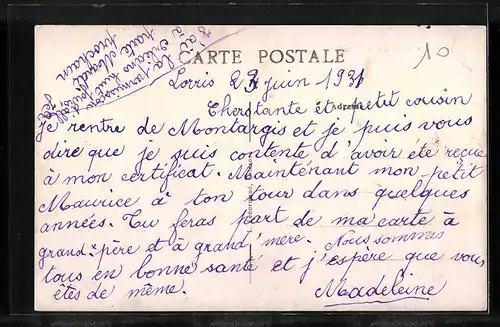 CARTE POSTALE
10
Lorris 27 juin 1931
Cher tante et petit cousin
Adresse
Je rentre de Montargis et je puis vous
dire que je suis contente d'avoir été reçue
à mon certificat. Maintenant mon petit
Maurice à ton tour dans quelques
années. Tu feras part de ma carte à
grand-père et à grand'mère. Nous sommes
tous en bonne santé et j'espère que vous
êtes de même. Madeleine
J'ai
à
La permission
Orléans
prochain